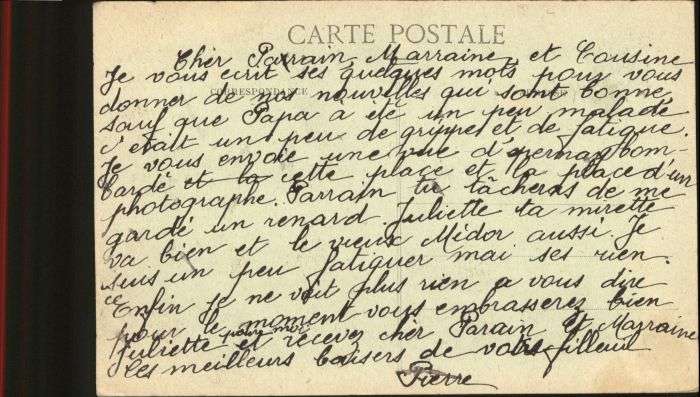 CARTE POSTALE
Cher Parrain, Marraine et Cousine
Je vous ecrit ses quelques mots pour vous
CORRESPONDANCE
donner de nos nouvelles qui sont bonne,
sauf que Papa a été un peu malade
c'était un peu de grippe et de fatigue.
Je vous envoie une vue d'epernay bom-
bardé et la cette place et la place d'un
photographe. Parrain tu tâcheras de me
gardé un renard. Juliette ta mirette
va bien et le vieux Médor aussi. Je
suis un peu fatiguer mai ses rien.
Enfin je ne voit plus rien a vous dire
pour le moment vous embrasserez bien
Juliette pour moi et recevez cher Parain et Marraine
les meilleurs baisers de votre filleul
Pierre